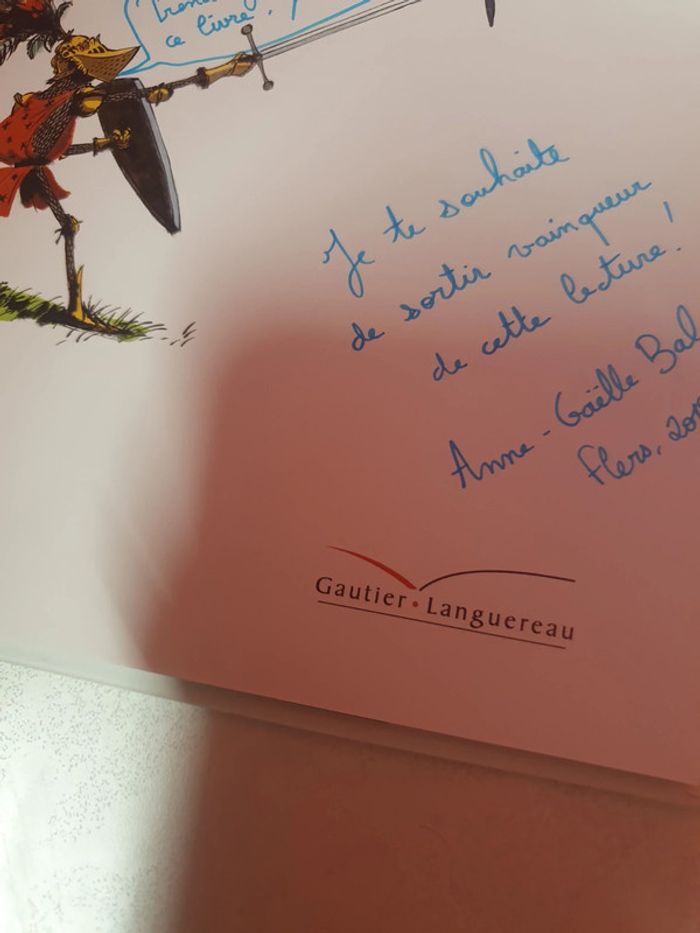 ce livre,
Je te souhaite
de sortir vainqueur
de cette lecture!
Anne-Gaëlle Bal
Flers,
Gautier • Languereau